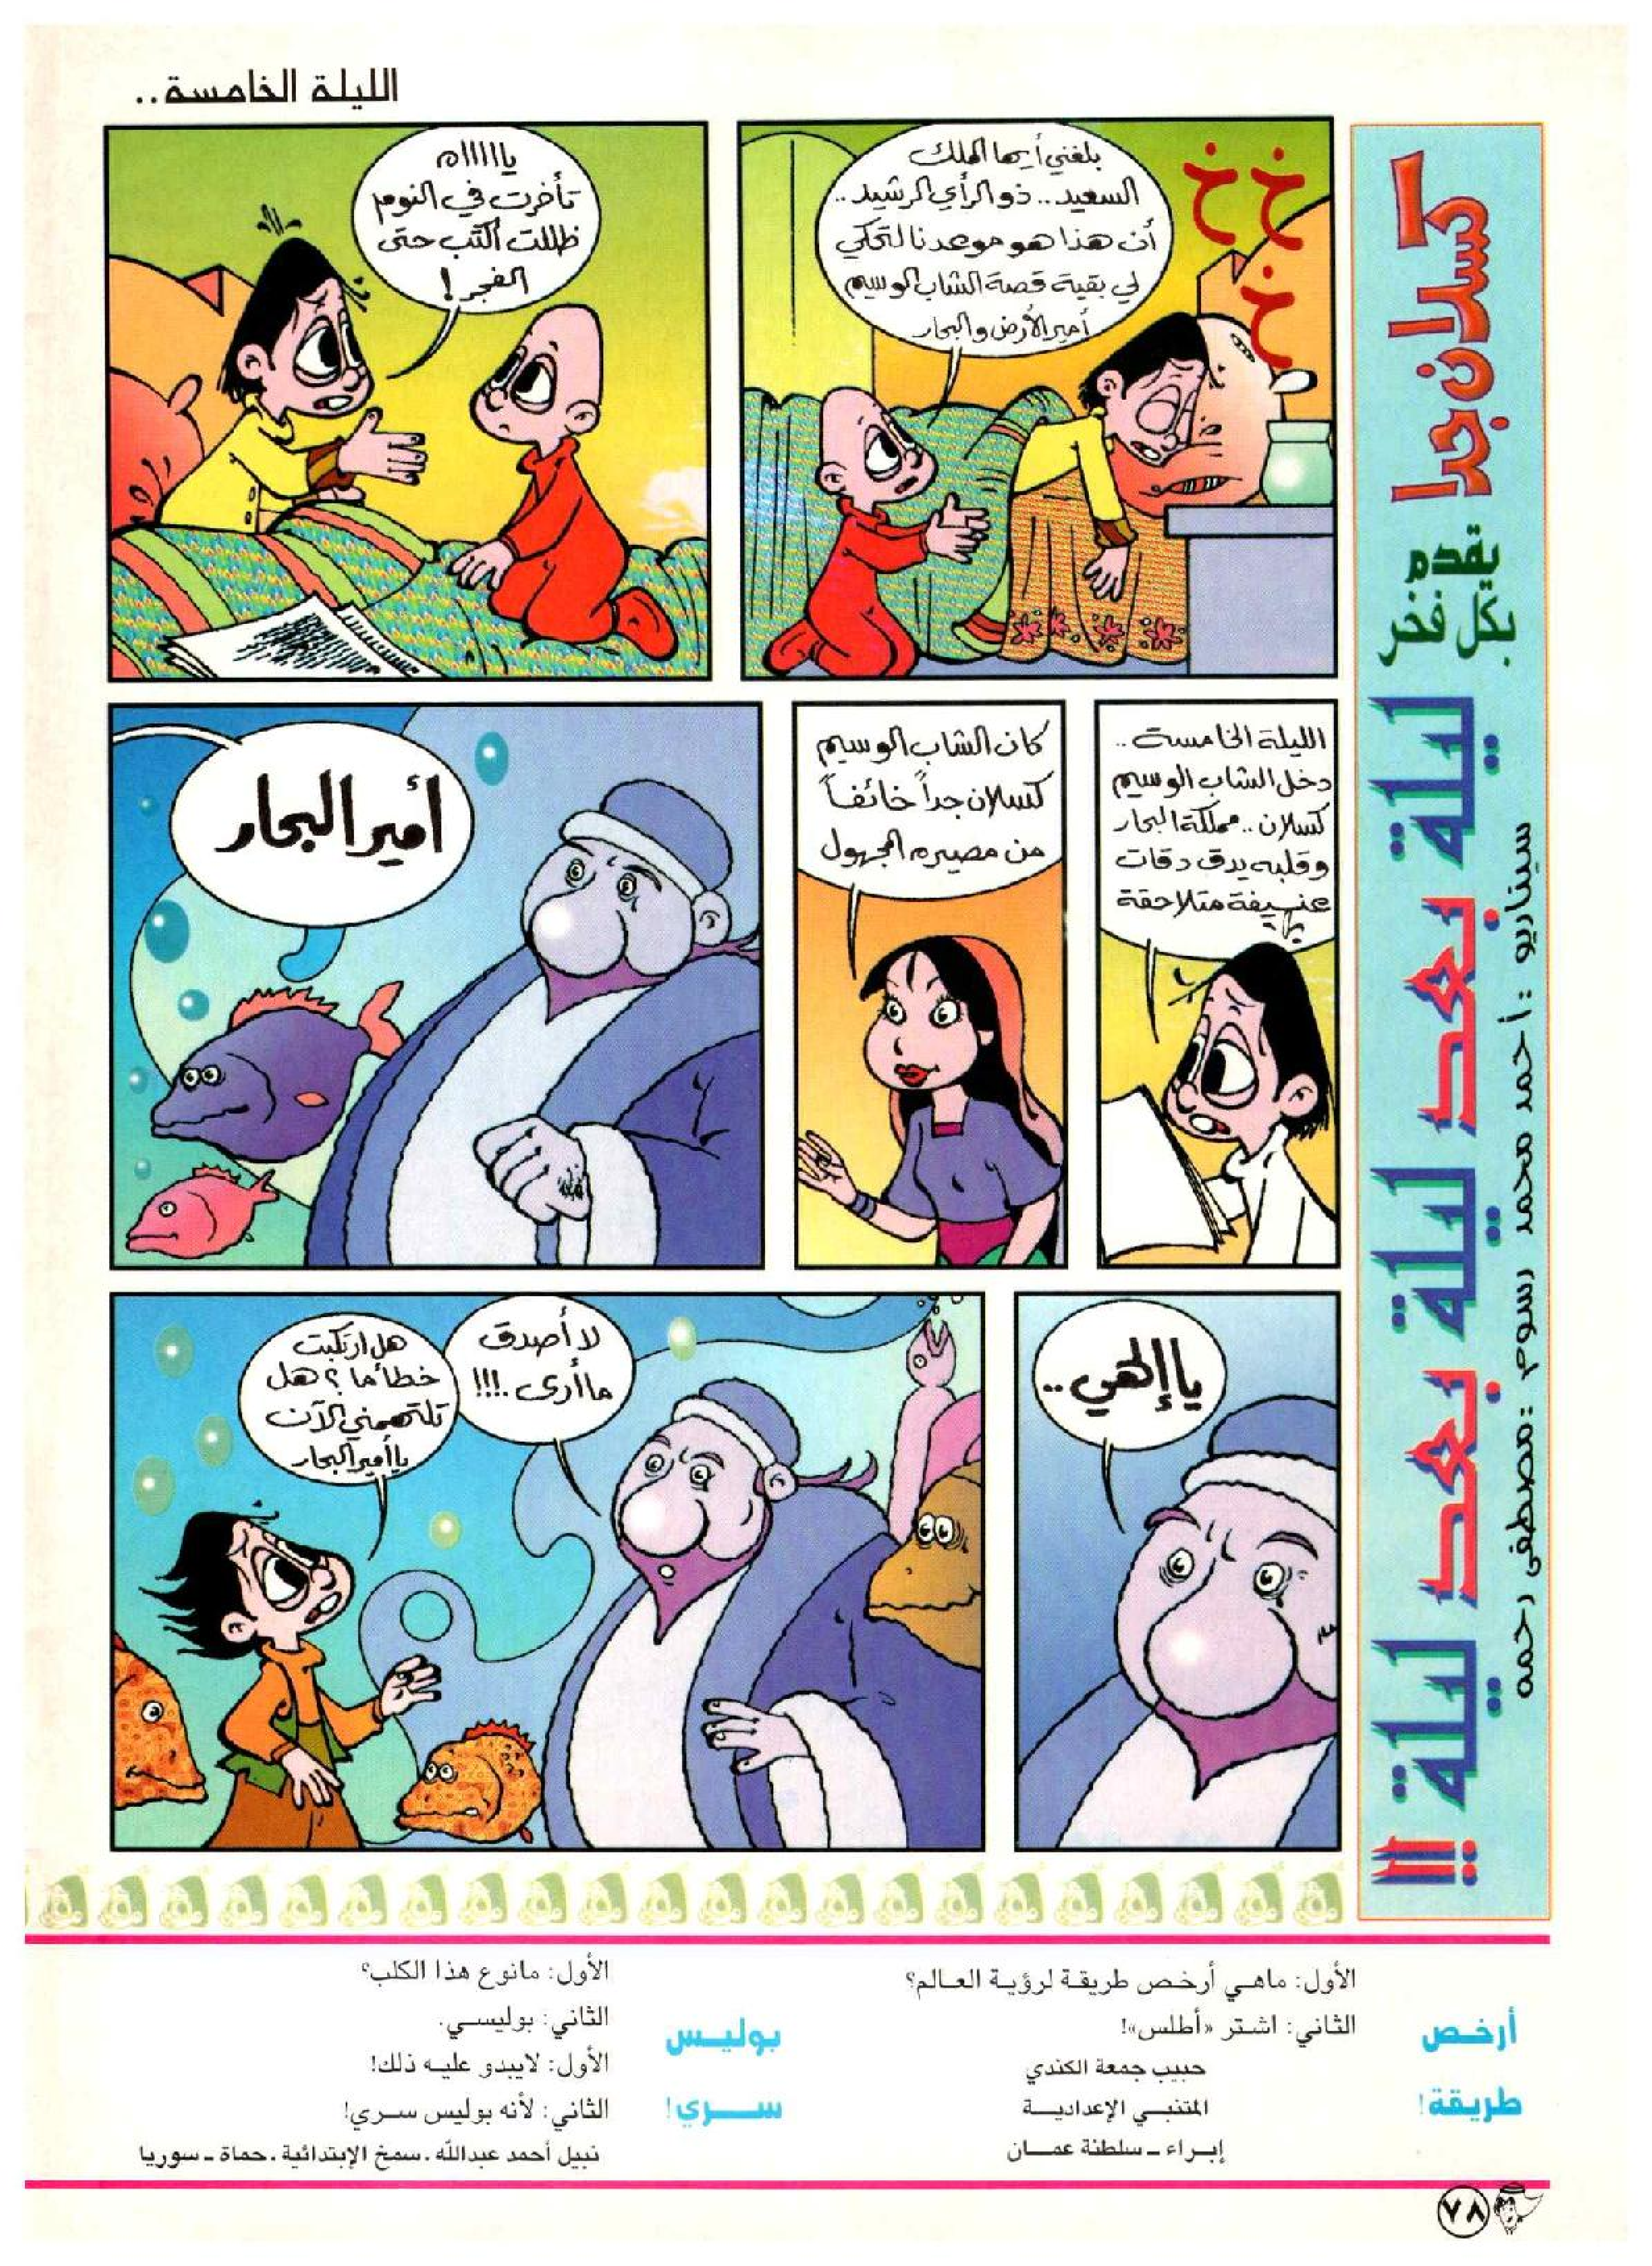 الليلة الخامسة..
كسلان جدا
يقدم
بكل فخر
ليلة بعد ليلة بعد ليلة !!!
سيناريو : أحمد محمد رسوم : مصطفى رحمه
خ خ
خ
بلغني أيها الملك
السعيد.. ذو الرأي الرشيد..
أن هذا هو موعدنا لتحكي
لي بقية قصة الشاب الوسيم
أمير الأرض والبحار
يااااااه
تأخرت في النوم
ظللت أكتب حتى
الفجر!
الليلة الخامسة..
دخل الشاب الوسيم
كسلان.. مملكة البحار
وقلبه يدق دقات
عنيفة متلاحقة
كان الشاب الوسيم
كسلان جداً خائفاً
من مصيره المجهول
أمير البحار
يا إلهي..
لا أصدق
ما أرى.!!!
هل ارتكبت
خطأ ما؟ هل
تلتهمني الآن
يا أمير البحار
أرخـص
طريقة!
الأول: ماهـي أرخـص طريقـة لرؤيـة العـالم؟
الثاني: اشـتر «أطلس»!
حبيب جمعة الكندي
المتنبـي الإعداديـة
إبـراء ـ سلطنة عمـان
بوليـس
ســري!
الأول: مانوع هذا الكلب؟
الثاني: بوليسـي.
الأول: لايبدو عليـه ذلك!
الثاني: لأنه بوليس سـري!
نبيل أحمد عبدالله . سمخ الإبتدائية . حماة ـ سوريا
٧٨